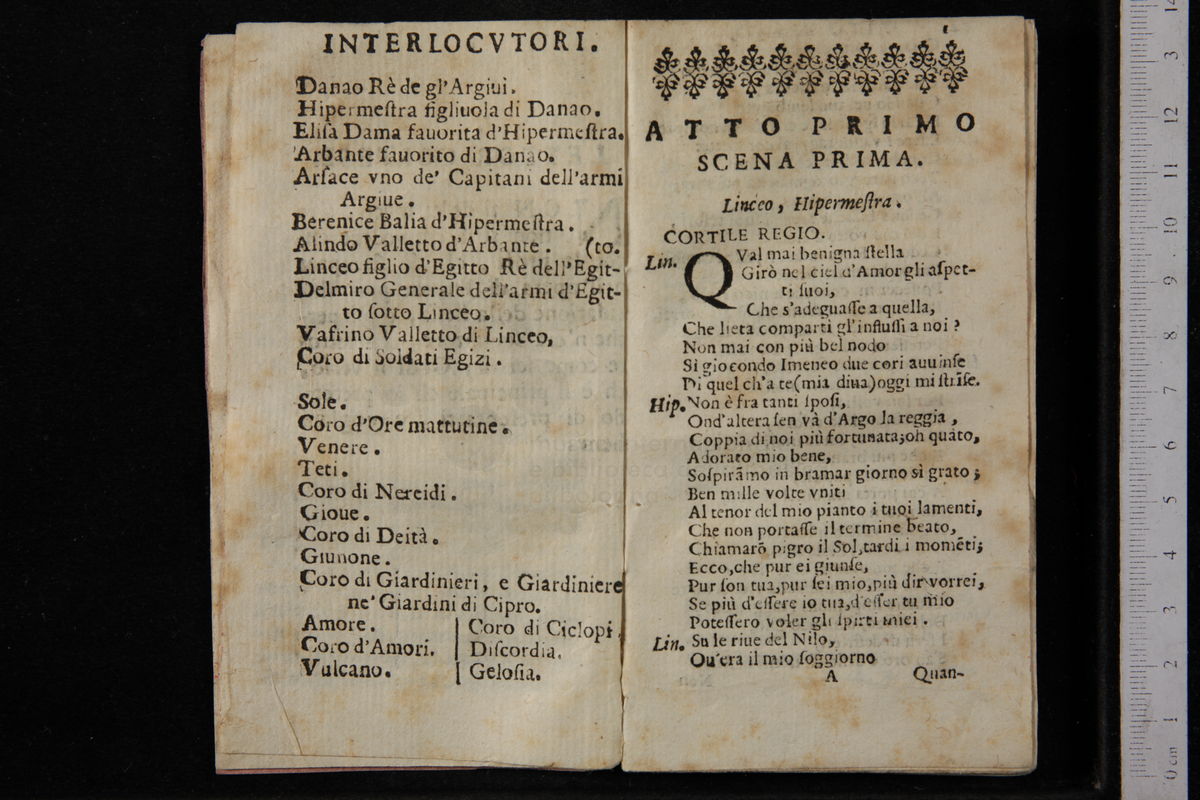 INTERLOCVTORI.
Danao Rè de gl'Argiui.
Hipermeſtra figliuola di Danao.
Eliſa Dama fauorita d'Hipermeſtra.
Arbante fauorito di Danao.
Arſace vno de' Capitani dell'armi
Argiue.
Berenice Balia d'Hipermeſtra.
Alindo Valletto d'Arbante. (to.
Linceo figlio d'Egitto Rè dell'Egit-
Delmiro Generale dell'armi d'Egit-
to ſotto Linceo.
Vafrino Valletto di Linceo,
Coro di Soldati Egizi.
Sole.
Coro d'Ore mattutine.
Venere.
Teti.
Coro di Nereidi.
Gioue.
Coro di Deità.
Giunone.
Coro di Giardinieri, e Giardiniere
ne' Giardini di Cipro.
Amore. | Coro di Ciclopi.
Coro d'Amori. | Diſcordia.
Vulcano. | Geloſia.
ATTO PRIMO
SCENA PRIMA.
Linceo, Hipermeſtra.
CORTILE REGIO.
Lin. QVal mai benigna ſtella
Girò nel ciel d'Amor gli aſpet-
ti ſuoi,
Che s'adeguaſſe a quella,
Che lieta comparti gl'influſſi a noi?
Non mai con più bel nodo
Si giocondo Imeneo due cori auuinſe
Di quel ch'a te (mia diua) oggi mi ſtriſe.
Hip. Non è fra tanti ſpoſi,
Ond'altera ſen và d'Argo la reggia,
Coppia di noi più fortunata; oh quāto,
Adorato mio bene,
Soſpirāmo in bramar giorno sì grato;
Ben mille volte vniti
Al tenor del mio pianto i tuoi lamenti,
Che non portaſſe il termine beato,
Chiamarō pigro il Sol, tardi i momēti;
Ecco, che pur ei giunſe,
Pur ſon tua, pur ſei mio, più dir vorrei,
Se più d'eſſere io tua, d'eſſer tu mio
Poteſſero voler gli ſpirti miei.
Lin. Su le riue del Nilo,
Ou'era il mio ſoggiorno
A Quan-
0 cm 1 2 3 4 5 6 7 8 9 10 11 12 3 14